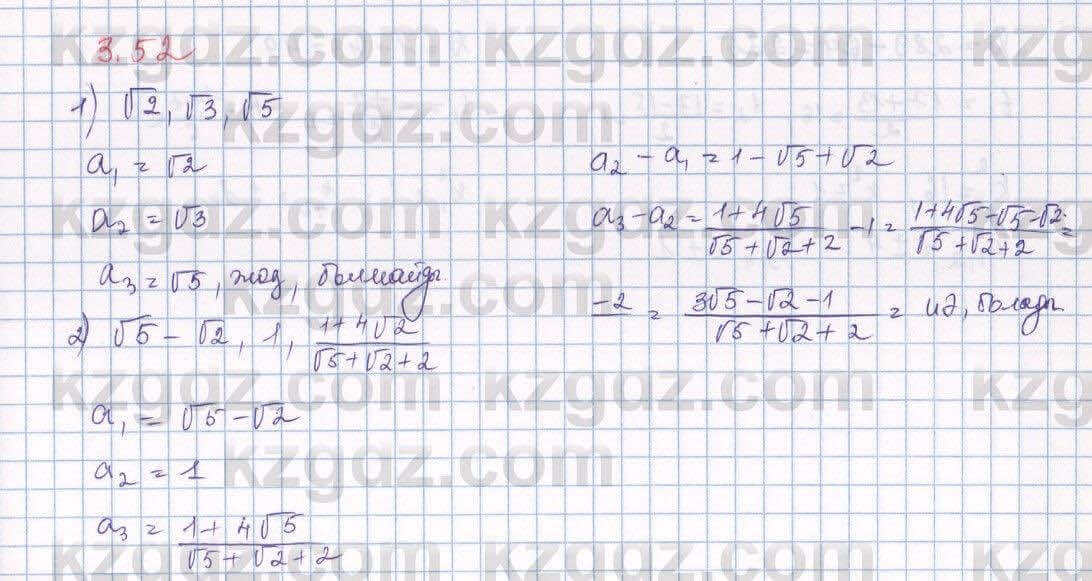 3.52
1) √2, √3, √5
a₁ = √2
a₂ = √3
a₃ = √5, жоқ, болмайды
2) √5 − √2, 1, (1+4√2)/(√5+√2+2)
a₁ = √5 − √2
a₂ = 1
a₃ = (1+4√5)/(√5+√2+2)
a₂ − a₁ = 1 − √5 + √2
a₃ − a₂ = (1+4√5)/(√5+√2+2) − 1 = (1+4√5−√5−√2)/(√5+√2+2) =
−2 = (3√5−√2−1)/(√5+√2+2) = иә, болады
kzgdz.com